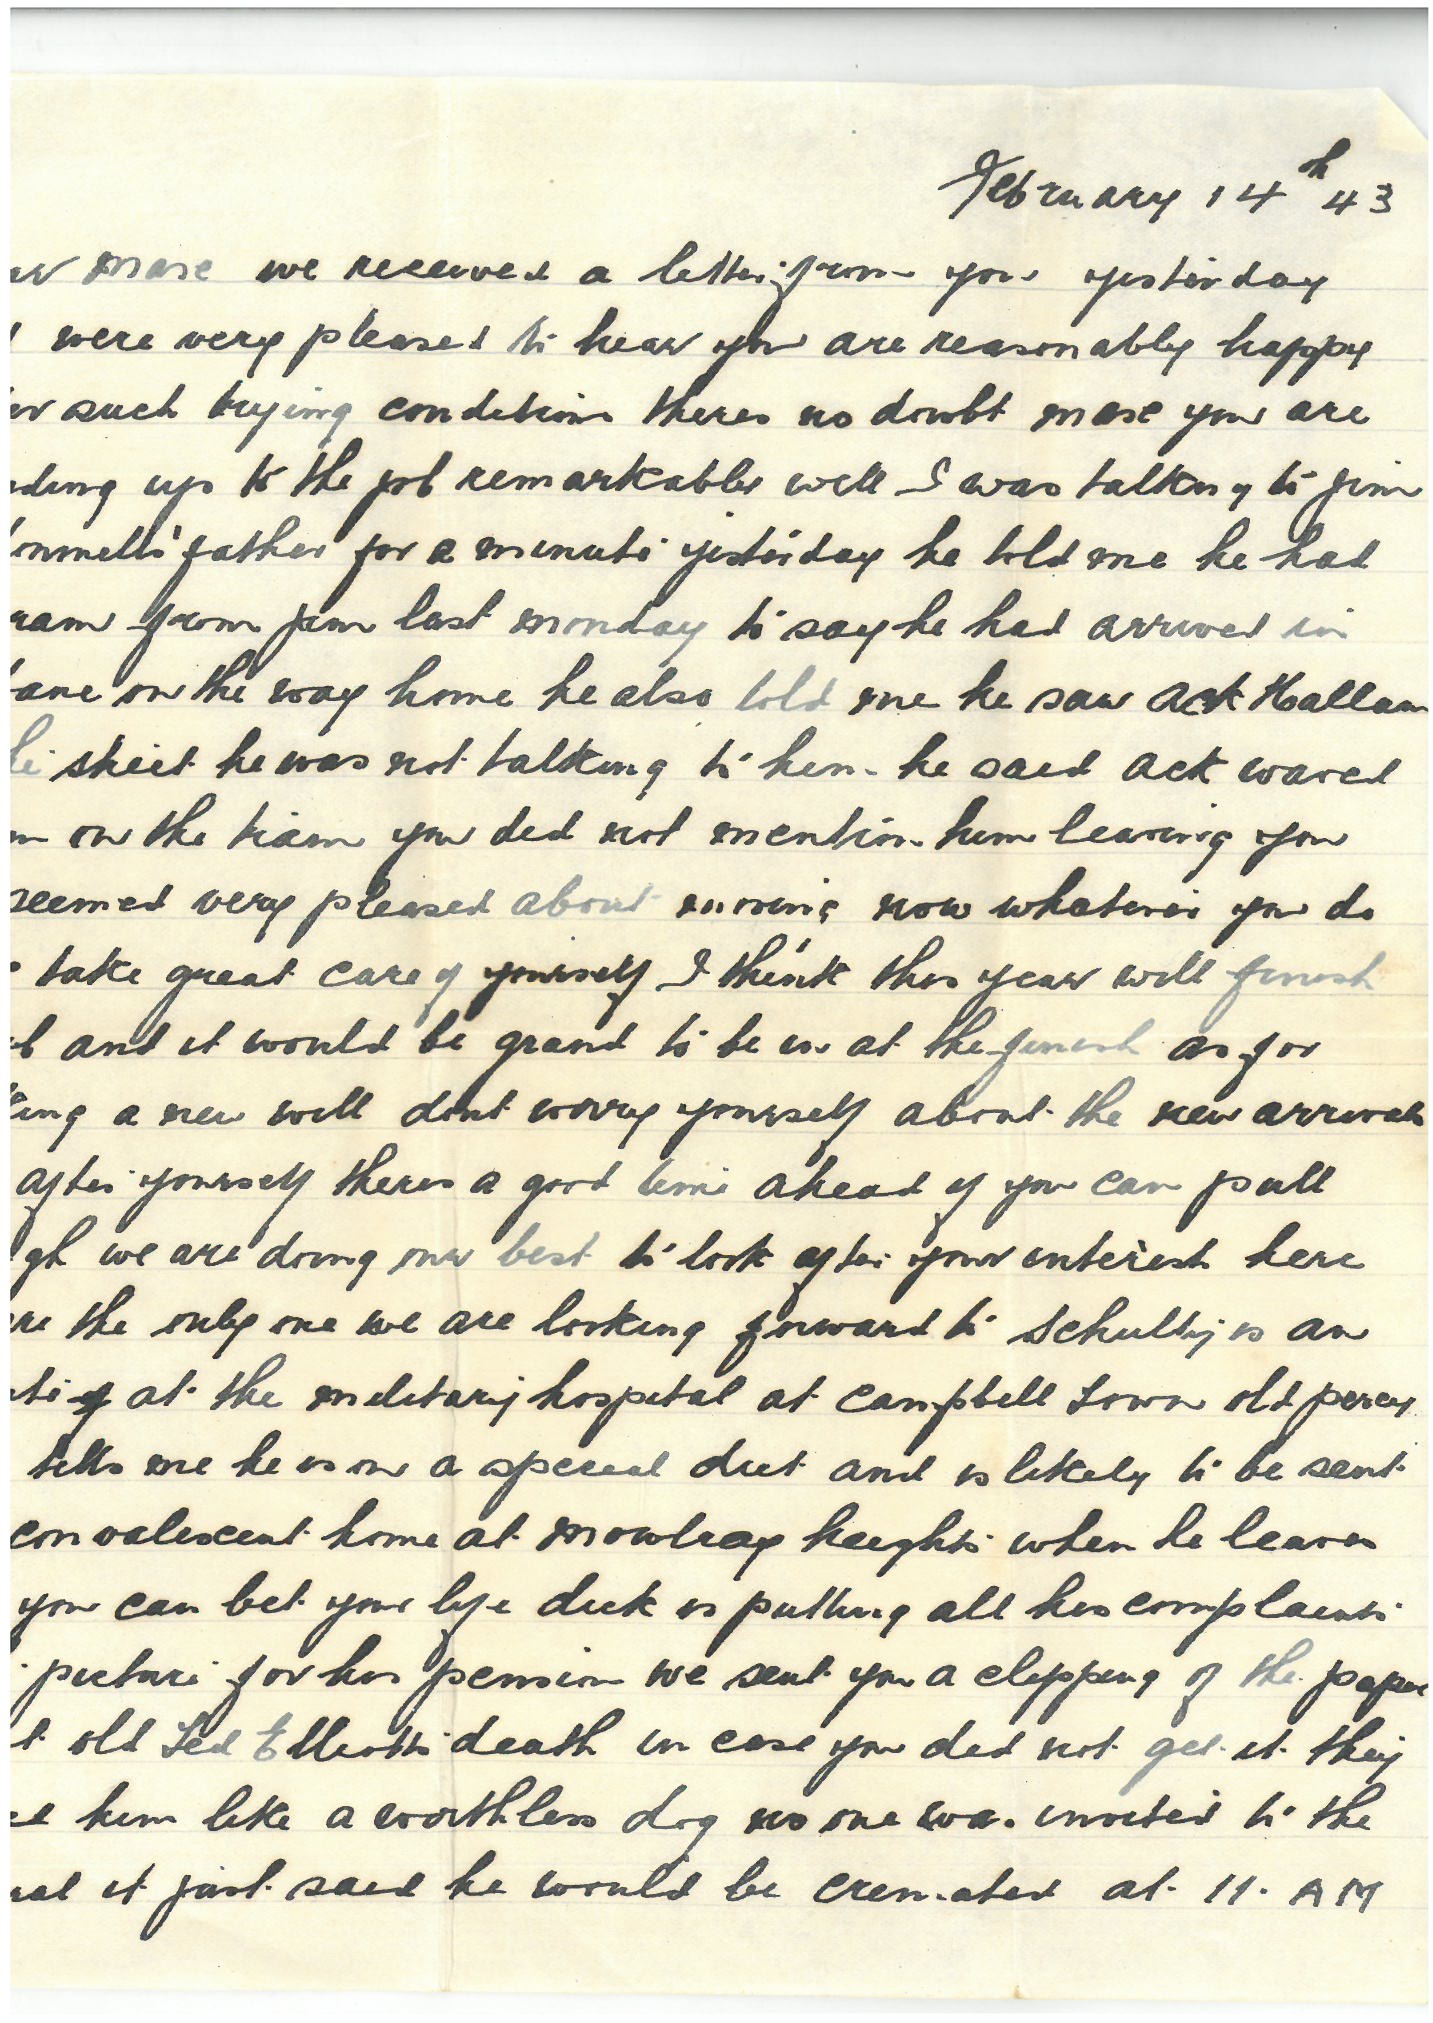 February 14th 43
mose we received a letter from you yesterday
were very pleased to hear you are reasonably happy
such trying conditions theres no doubt mose you are
ding up to the job remarkable well I was talking to jim
father for a minute yesterday he told me he had
ram from jim last monday to say he had arrived in
bane on the way home he also told me he saw Ack Hallam
street he was not talking to him he said Ack waved
on the tram you did not mention him leaving you
seemed very pleased about moving now whatever you do
take great care of yourself I think this year will finish
and it would be grand to be in at the finish as for
king a new will dont worry yourself about the new arrivals
after yourself theres a good time ahead if you can pull
gh we are doing our best to look after your interest here
re the only one we are looking forward to Schultzy is an
at the military hospital at Campbell Town old percy
tells me he is on a special diet and is likely to be sent
convalescent home at mowbray heights when he leaves
you can bet your life dick is putting all his complaints
picture for his pension we sent you a clipping of the paper
t old Ted Elliotts death in case you did not get it they
him like a worthless dog no one was invited to the
ral it just said he would be cremated at 11. AM